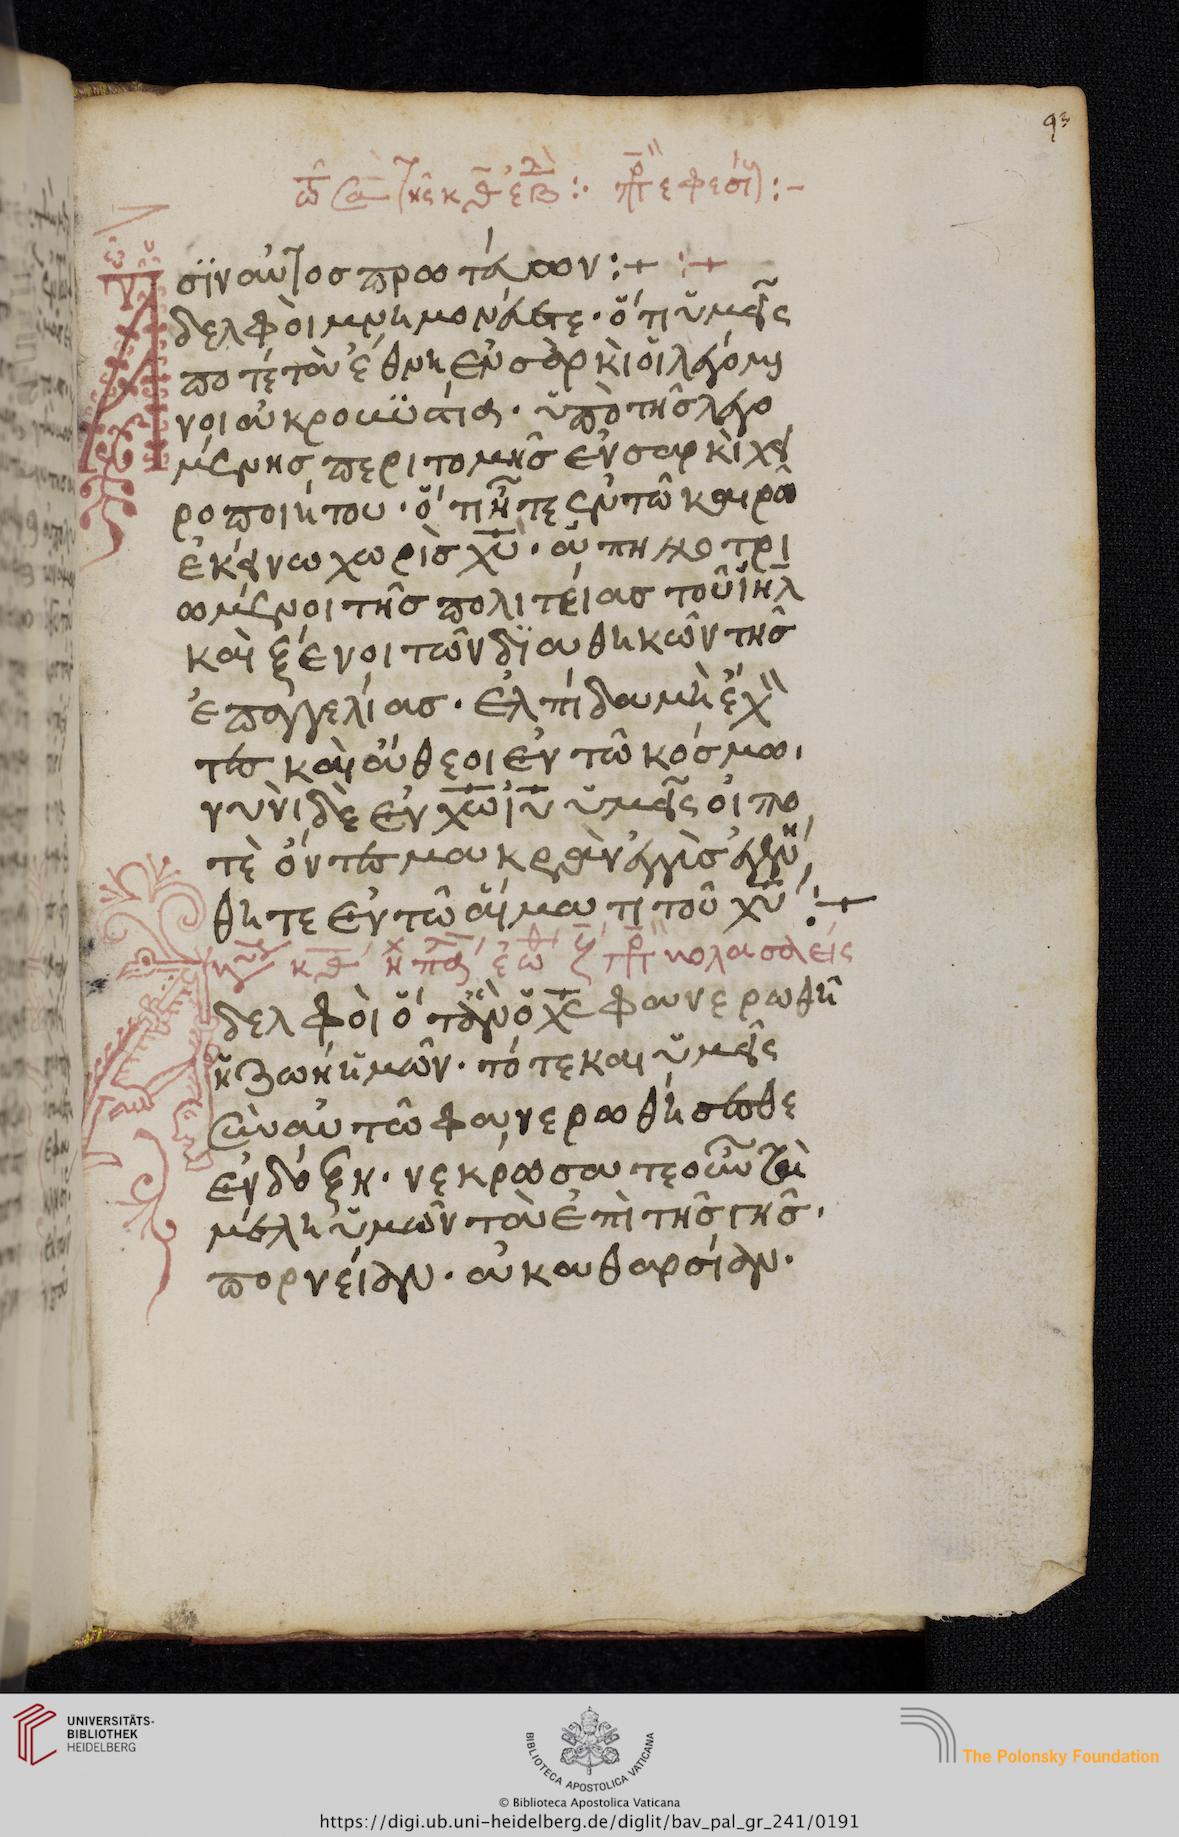 93
σϊν αὐτος πρωτέυων :+ :+
δελφὸι μνημονέυετε · ὅτι ὑμεῖς
ποτέ τὰ ἔθνη ἐν σαρκὶ ὅι λεγόμε
νοι ἀκροβυστία · ὑπὸ τῆς λεγο
μένης περιτομῆς ἐν σαρκὶ χει
ροποιήτου · ὅτι ἦτε ἐν τῶ καιρῶ
ἐκείνω χωρὶς χυ · ἀπηλλοτρι
ωμένοι τῆς πολιτείας τοῦ ιηλ
καὶ ξένοι τῶν διαθηκῶν τῆς
ἐπαγγελίας · ἐλπίδα μὴ ἔχον
τες καὶ ἄθεοι ἐν τῶ κόσμω ·
νυνὶ δὲ ἐν χω ιυ ὑμεῖς οἱ πο
τὲ ὄντες μακρὰν ἐγγὺς ἐγενή
θητε ἐν τῶ αἵματι τοῦ χυ :+
δελφὸι ὅταν ὁ χς φανερωθῆ
ἡ ζωή ἡμῶν · τότε και ὑμεῖς
σὺν αὐτῶ φανερωθήσεσθε
ἐν δόξη · νεκρώσατε οὖν τὰ
μέλη ὑμῶν τὰ ἐπὶ τῆς γῆς ·
πορνείαν · ἀκαθαρσίαν ·
UNIVERSITÄTS-
BIBLIOTHEK
HEIDELBERG
BIBLIOTECA APOSTOLICA VATICANA
© Biblioteca Apostolica Vaticana
The Polonsky Foundation
https://digi.ub.uni-heidelberg.de/diglit/bav_pal_gr_241/0191